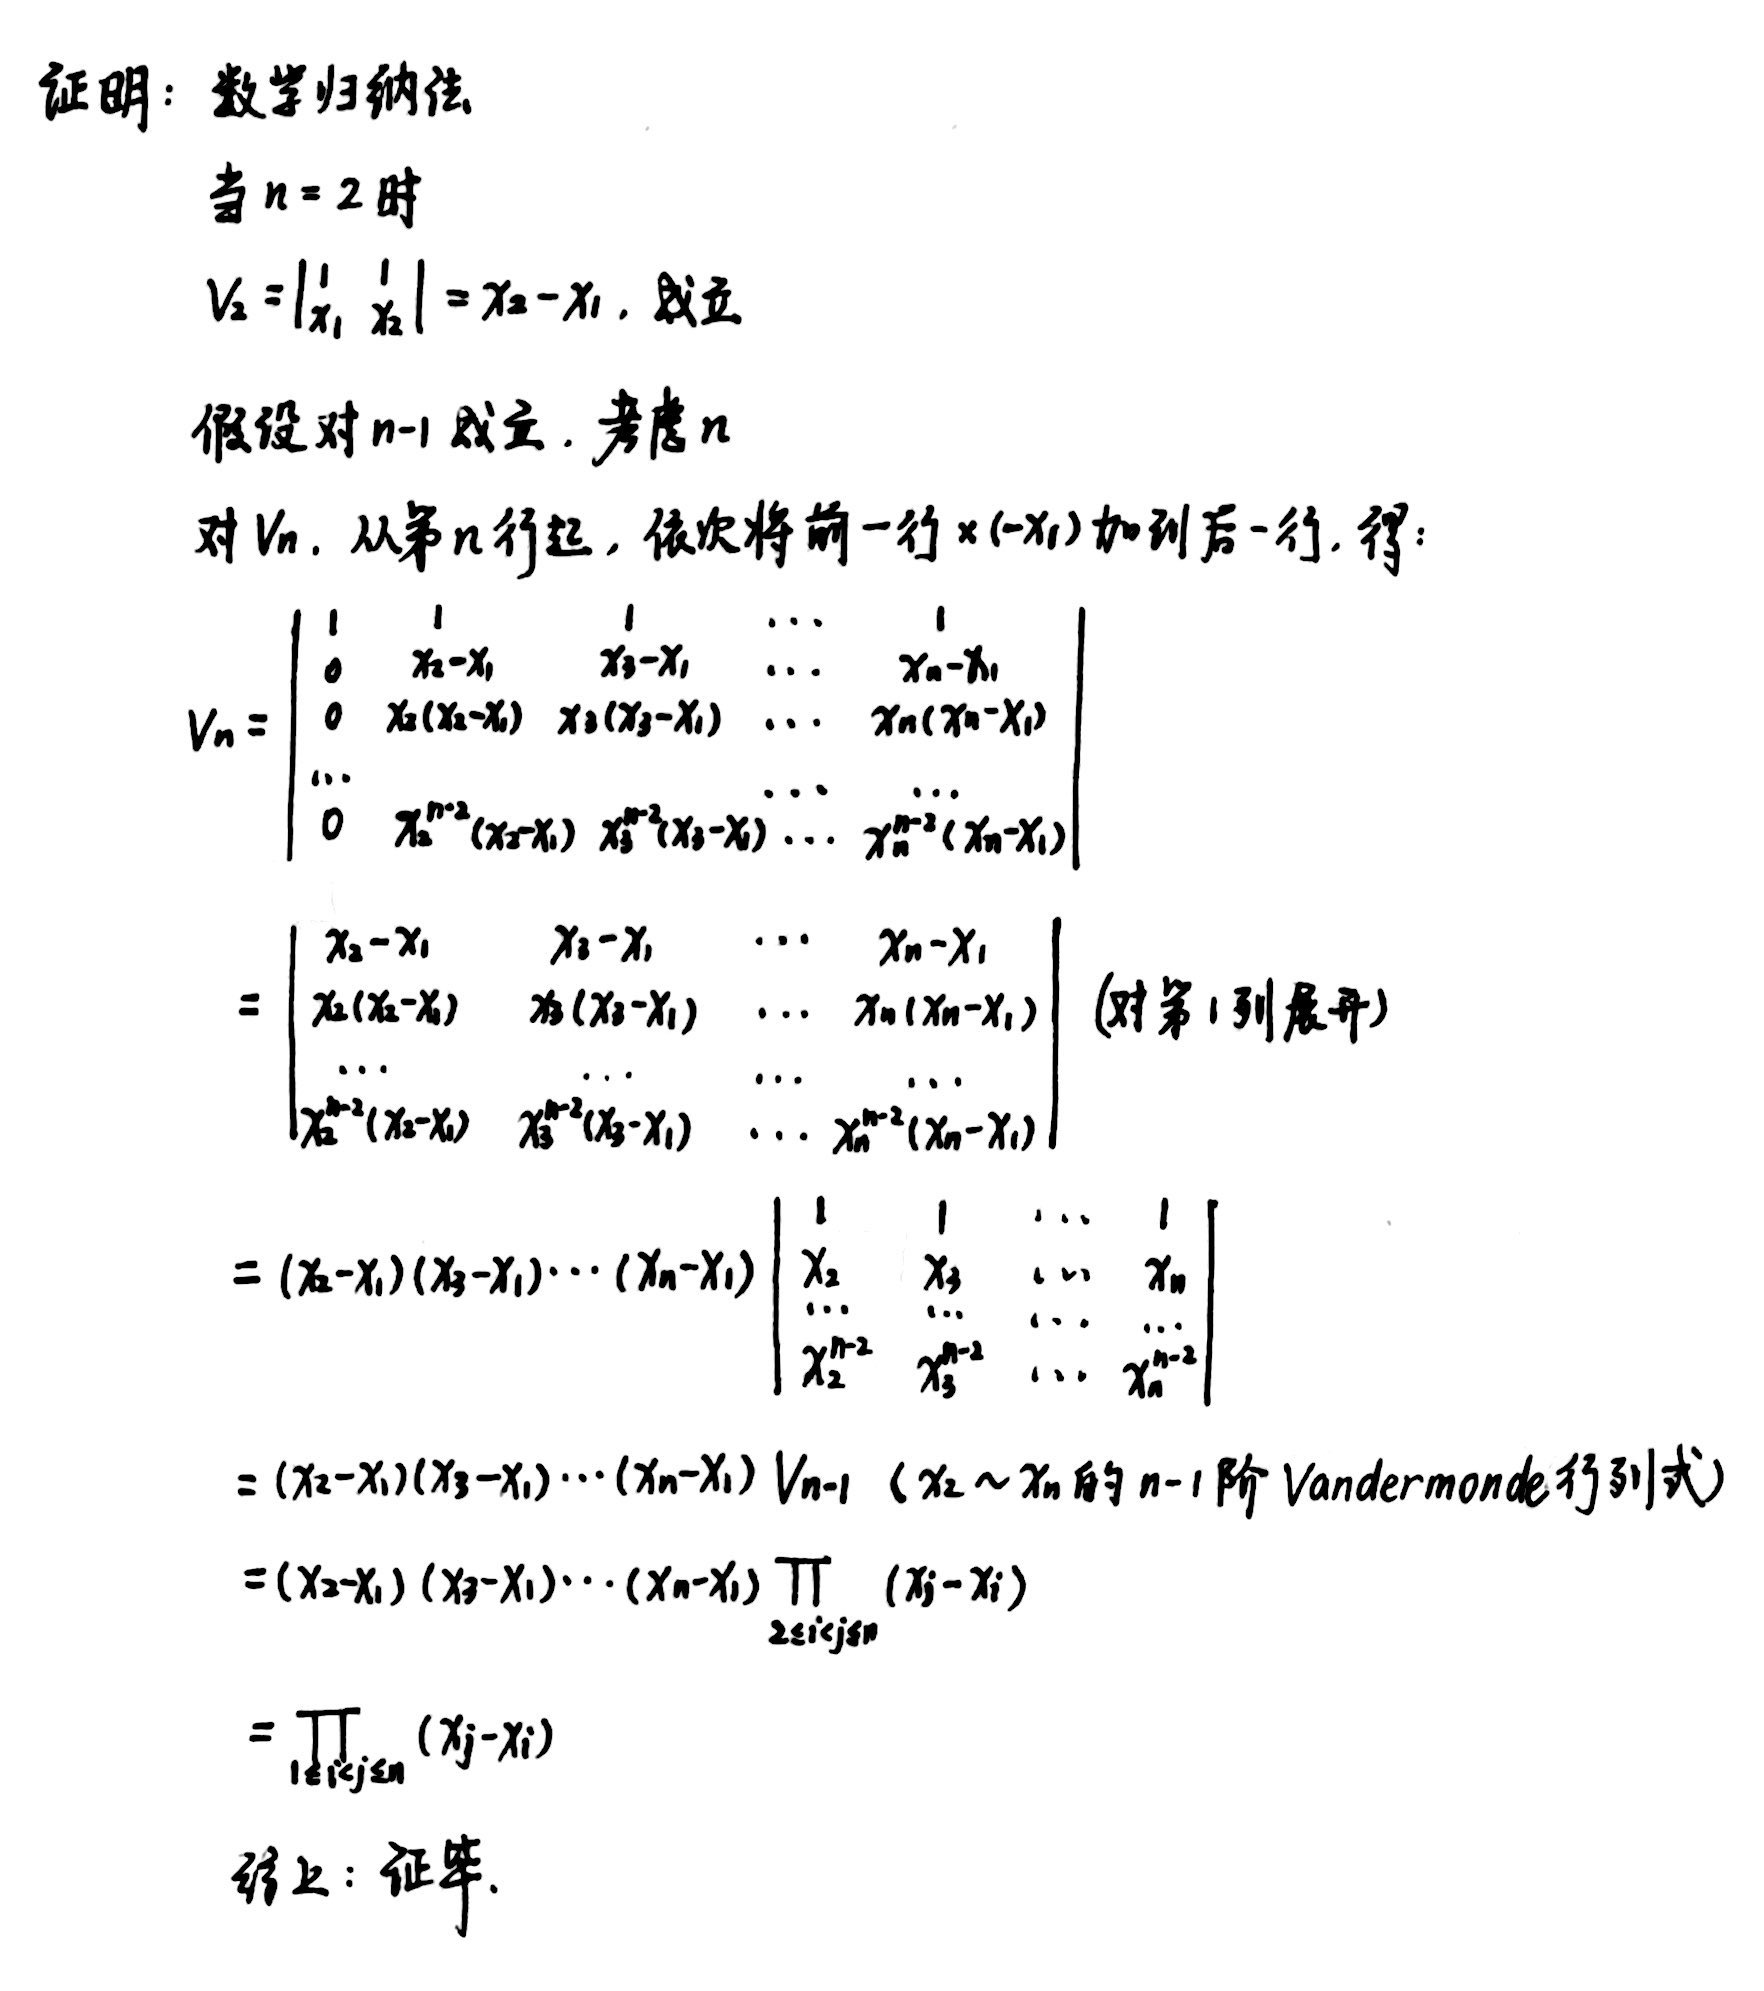 证明：数学归纳法
当 n = 2 时
V₂ = |1 1; x₁ x₂| = x₂ - x₁，成立
假设对 n-1 成立．考虑 n
对 Vₙ．从第 n 行起，依次将前一行 × (-x₁) 加到后一行，得：
Vₙ =
| 1 1 1 ... 1 |
| 0 x₂-x₁ x₃-x₁ ... xₙ-x₁ |
| 0 x₂(x₂-x₁) x₃(x₃-x₁) ... xₙ(xₙ-x₁) |
| ... ... ... |
| 0 x₂ⁿ⁻²(x₂-x₁) x₃ⁿ⁻²(x₃-x₁) ... xₙⁿ⁻²(xₙ-x₁) |
=
| x₂-x₁ x₃-x₁ ... xₙ-x₁ |
| x₂(x₂-x₁) x₃(x₃-x₁) ... xₙ(xₙ-x₁) | (对第1列展开)
| ... ... ... ... |
| x₂ⁿ⁻²(x₂-x₁) x₃ⁿ⁻²(x₃-x₁) ... xₙⁿ⁻²(xₙ-x₁) |
= (x₂-x₁)(x₃-x₁)···(xₙ-x₁)
| 1 1 ... 1 |
| x₂ x₃ ... xₙ |
| ... ... ... ... |
| x₂ⁿ⁻² x₃ⁿ⁻² ... xₙⁿ⁻² |
= (x₂-x₁)(x₃-x₁)···(xₙ-x₁) Vₙ₋₁ (x₂ ~ xₙ 的 n-1 阶 Vandermonde 行列式)
= (x₂-x₁)(x₃-x₁)···(xₙ-x₁) ∏_{2≤i<j≤n} (xⱼ-xᵢ)
= ∏_{1≤i<j≤n} (xⱼ-xᵢ)
综上：证毕.